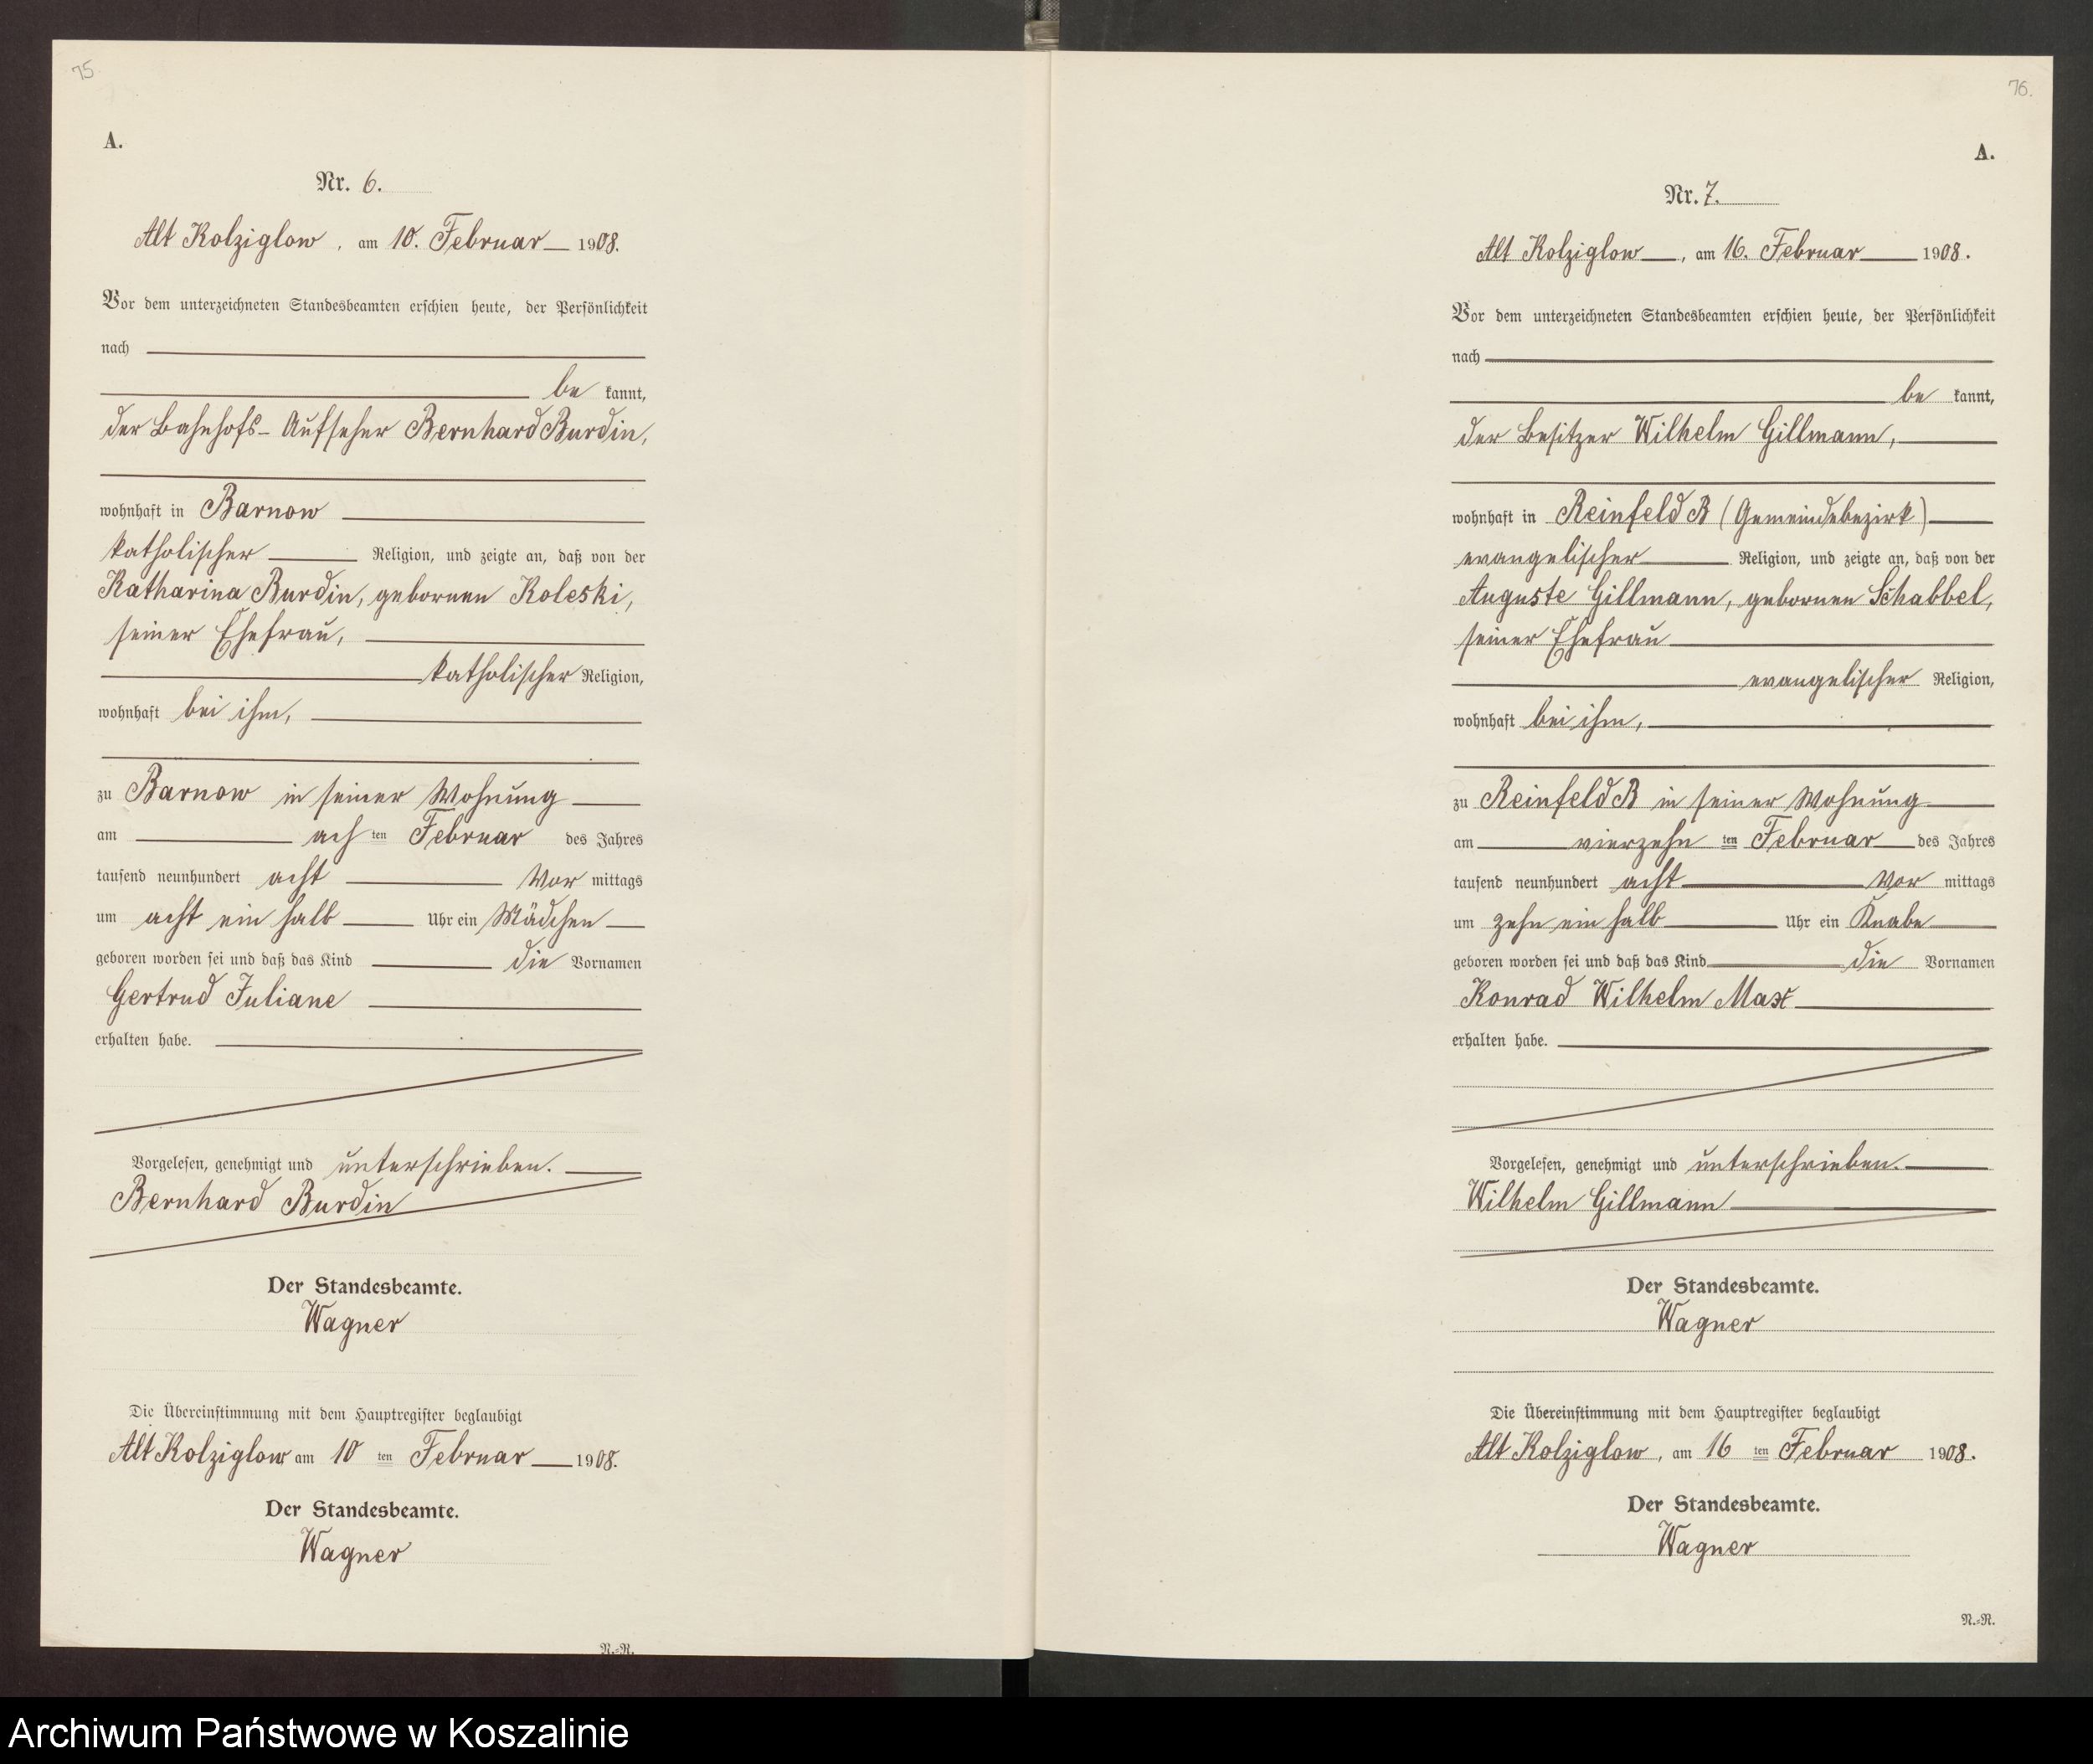 75
A.
Nr. 6.
Alt Kolziglow, am 10. Februar 1908.
Vor dem unterzeichneten Standesbeamten erschien heute, der Persönlichkeit
nach
be kannt,
der Bahnhofs-Aufseher Bernhard Burdin,
wohnhaft in Barnow
katholischer Religion, und zeigte an, daß von der
Katharina Burdin, gebornen Koleski,
seiner Ehefrau,
katholischer Religion,
wohnhaft bei ihm,
zu Barnow in seiner Wohnung
am ach ten Februar des Jahres
tausend neunhundert acht Vor mittags
um acht ein halb Uhr ein Mädchen
geboren worden sei und daß das Kind die Vornamen
Gertrud Juliane
erhalten habe.
Vorgelesen, genehmigt und unterschrieben.
Bernhard Burdin
Der Standesbeamte.
Wagner
Die Übereinstimmung mit dem Hauptregister beglaubigt
Alt Kolziglow am 10 ten Februar 1908.
Der Standesbeamte.
Wagner
N.=R.
76.
A.
Nr. 7.
Alt Kolziglow, am 16. Februar 1908.
Vor dem unterzeichneten Standesbeamten erschien heute, der Persönlichkeit
nach
be kannt,
der Besitzer Wilhelm Gillmann,
wohnhaft in Reinfeld B (Gemeindebezirk)
evangelischer Religion, und zeigte an, daß von der
Auguste Gillmann, gebornen Schabbel,
seiner Ehefrau
evangelischer Religion,
wohnhaft bei ihm,
zu Reinfeld B in seiner Wohnung
am vierzehn ten Februar des Jahres
tausend neunhundert acht Vor mittags
um zehn ein halb Uhr ein Knabe
geboren worden sei und daß das Kind die Vornamen
Konrad Wilhelm Max
erhalten habe.
Vorgelesen, genehmigt und unterschrieben.
Wilhelm Gillmann
Der Standesbeamte.
Wagner
Die Übereinstimmung mit dem Hauptregister beglaubigt
Alt Kolziglow, am 16 ten Februar 1908.
Der Standesbeamte.
Wagner
N.=R.
Archiwum Państwowe w Koszalinie